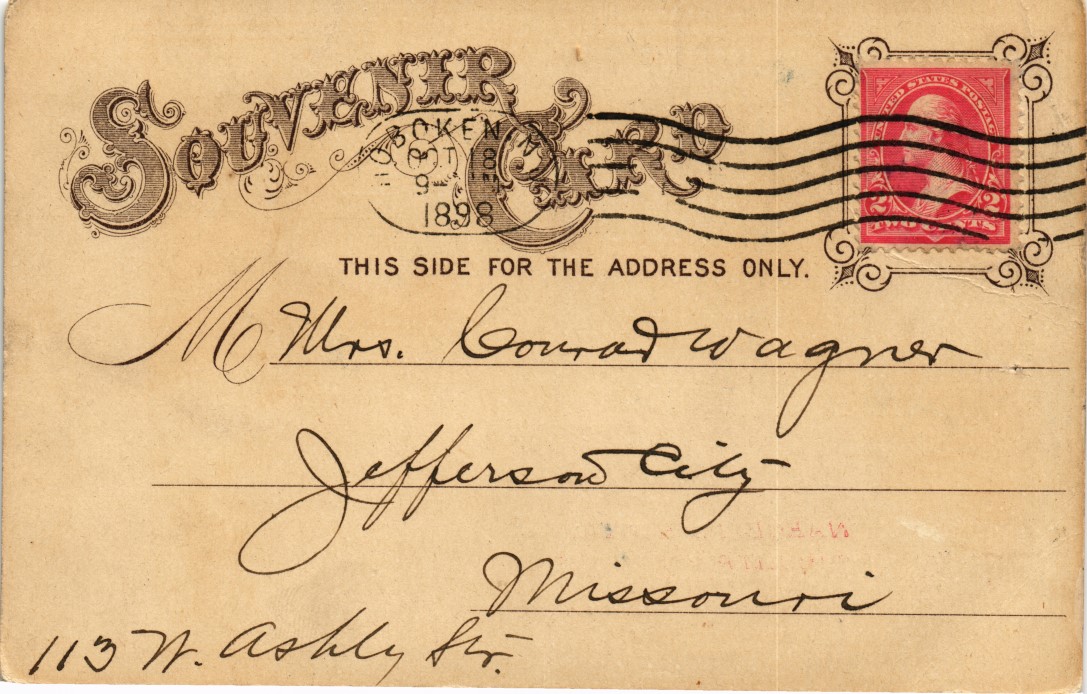 SOUVENIR CARD
HOBOKEN N.J.
OCT 8
1898
UNITED STATES POSTAGE
2 2
TWO CENTS
THIS SIDE FOR THE ADDRESS ONLY.
M Mrs. Conrad Wagner
Jefferson City
Missouri
113 W. Ashly Str.